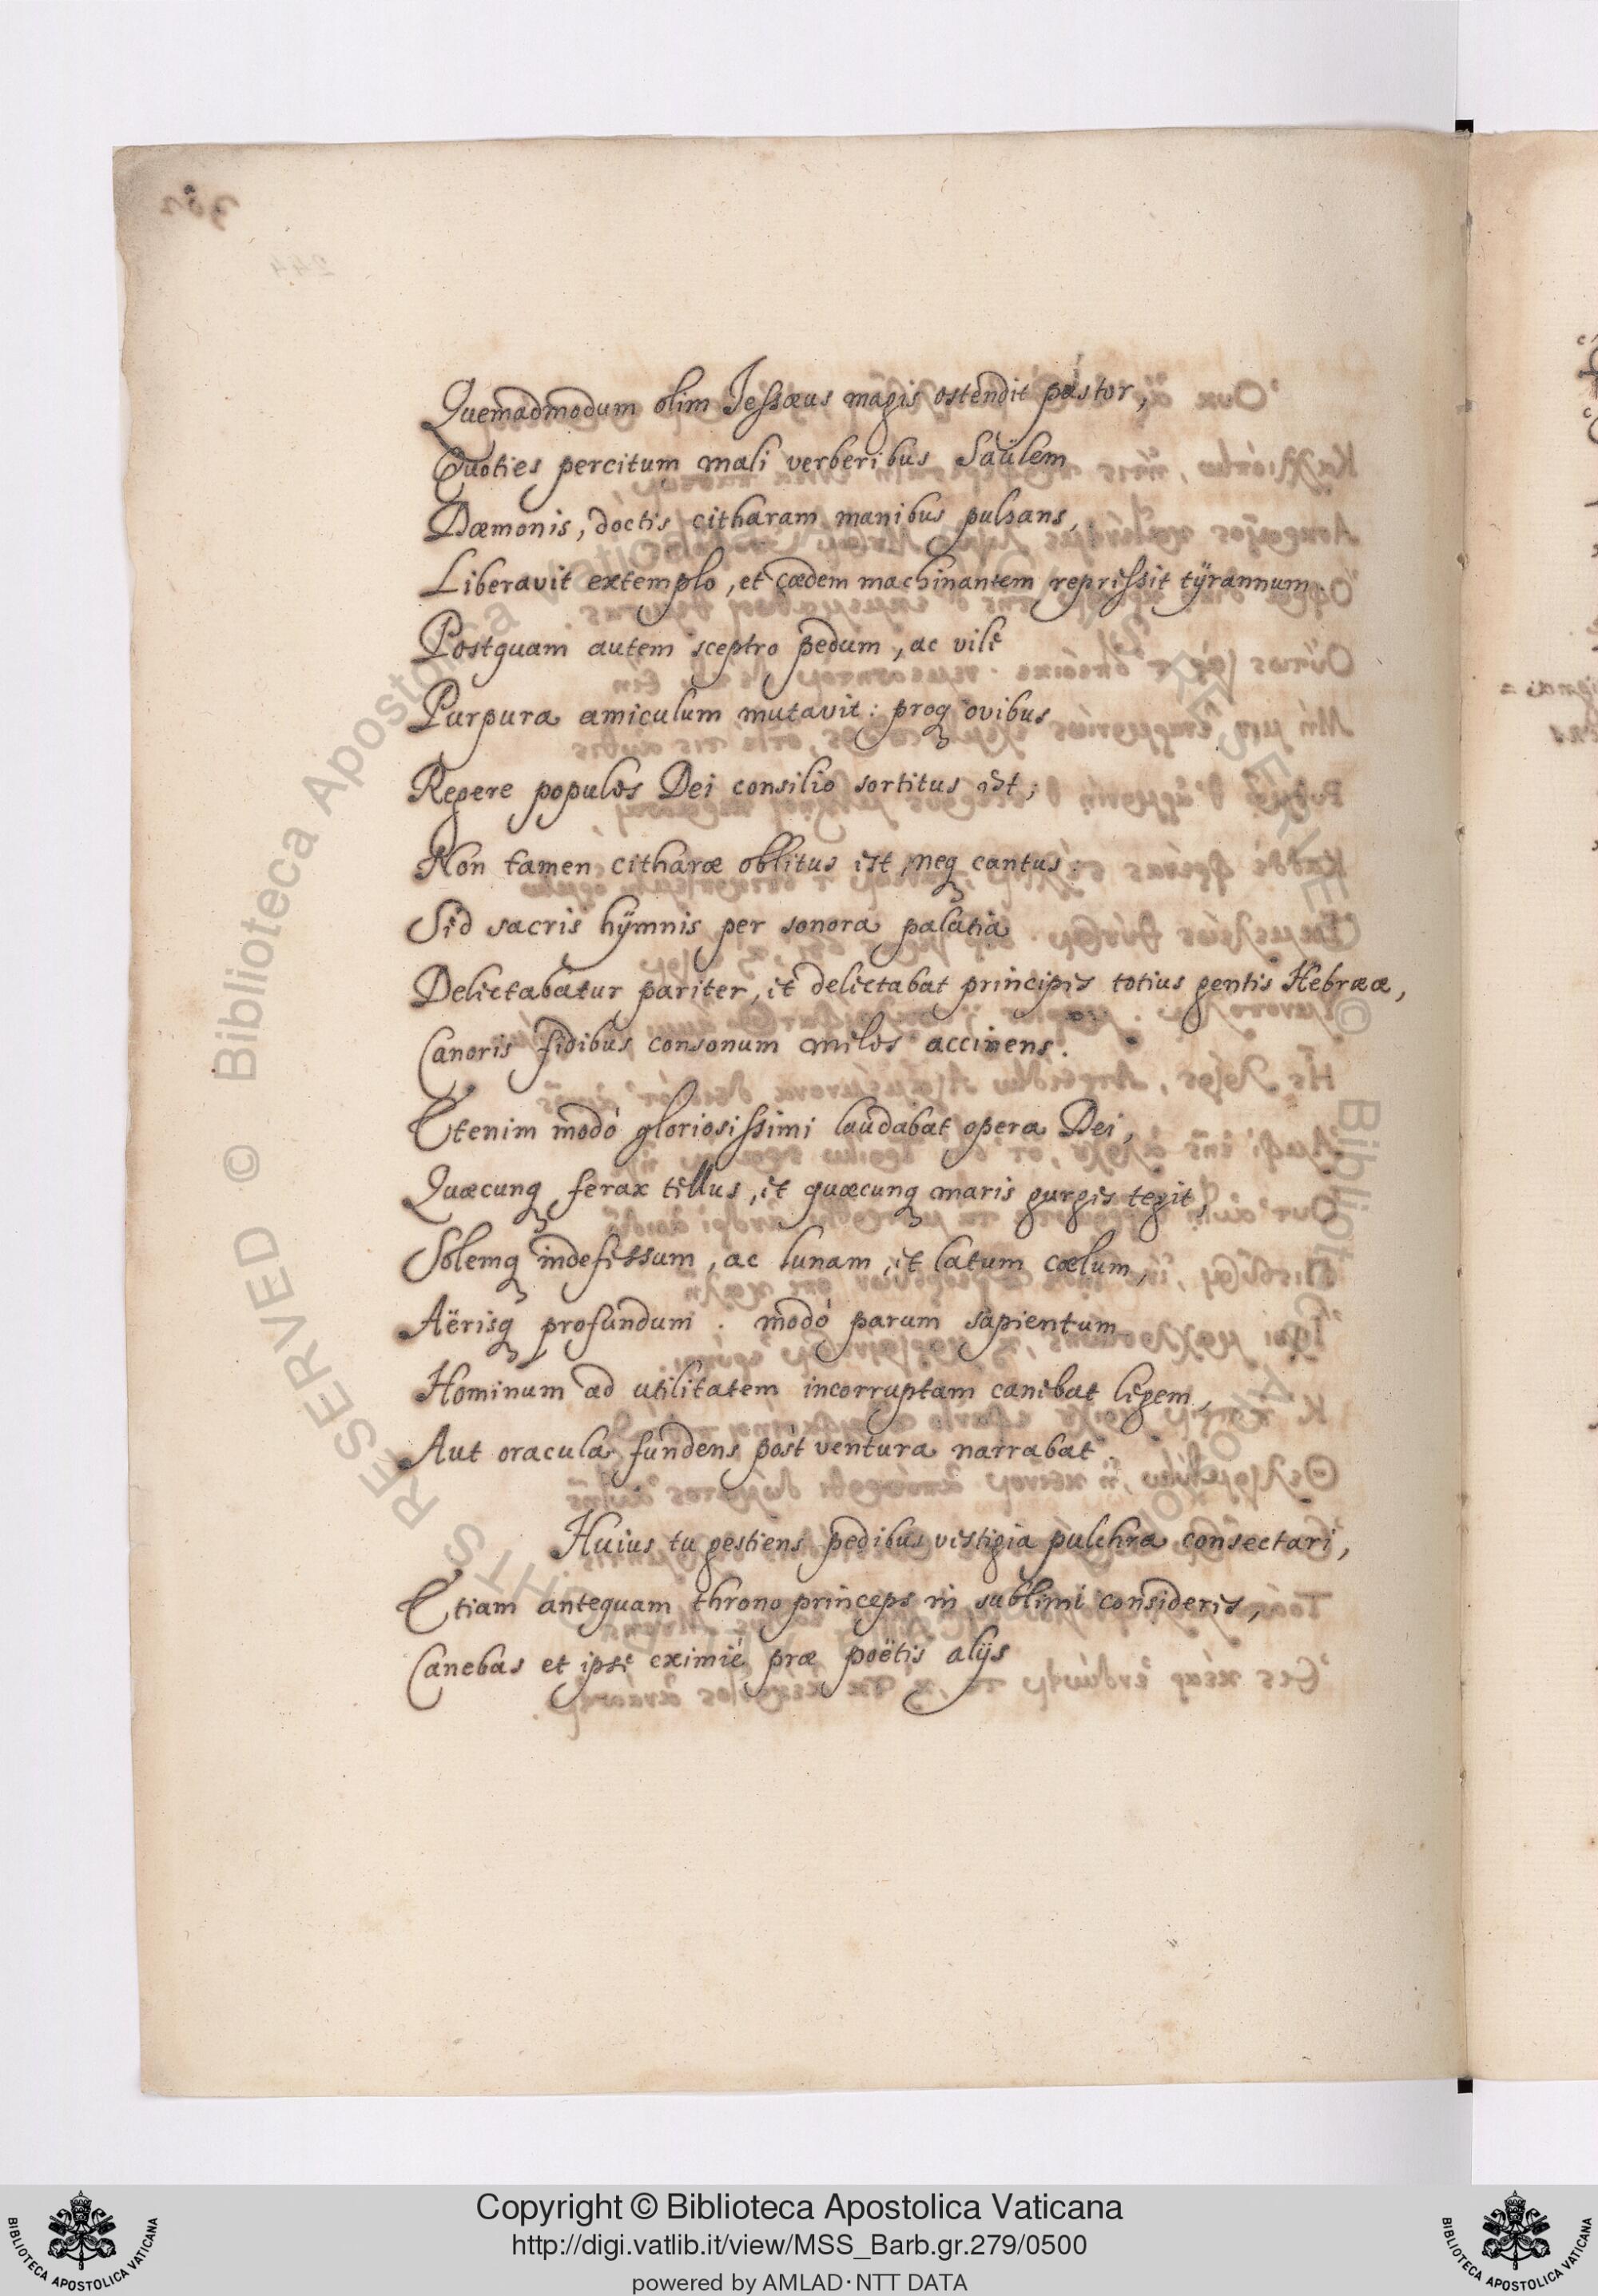 Quemadmodum olim Jessæus magis ostendit pastor,
Quoties percitum mali verberibus Saülem
Dæmonis, doctis citharam manibus pulsans,
Liberavit extemplo, et cædem machinantem repressit tÿrannum.
Postquam autem sceptro pedum, ac vile
Purpura amiculum mutavit: proq ovibus
Regere populos Dei consilio sortitus est;
Non tamen citharæ oblitus est, neq cantus:
Sed sacris hÿmnis per sonora palatia
Delectabatur pariter, et delectabat principes totius gentis Hebrææ,
Canoris fidibus consonum melos accinens.
Etenim modò gloriosissimi laudabat opera Dei,
Quæcunq ferax tellus, et quæcunq maris gurges tegit,
Solemq indefessum, ac lunam, et latum cœlum,
Aërisq profundum. modò parum sapientum
Hominum ad utilitatem incorruptam canebat legem,
Aut oracula fundens post ventura narrabat.
Huius tu gestiens pedibus vestigia pulchra consectari,
Etiam antequam throno princeps in sublimi consideres,
Canebas et ipse eximiè præ poëtis alijs
Copyright © Biblioteca Apostolica Vaticana
http://digi.vatlib.it/view/MSS_Barb.gr.279/0500
powered by AMLAD·NTT DATA
BIBLIOTECA APOSTOLICA VATICANA
BIBLIOTECA APOSTOLICA VATICANA